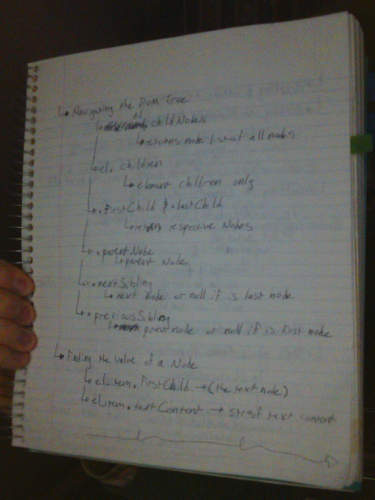 ↳ Navigating the DOM Tree
↳ el.childNodes
↳ returns node list of all nodes
↳ el.children
↳ element children only
↳ .firstChild & .lastChild
↳ return respective Nodes
↳ .parentNode
↳ parent Node
↳ .nextSibling
↳ next node or null if is last node
↳ .previousSibling
↳ prev node or null if is first node
↳ Finding the value of a Node
↳ elitem.firstChild → (the text node)
↳ elitem.textContent → str of text content